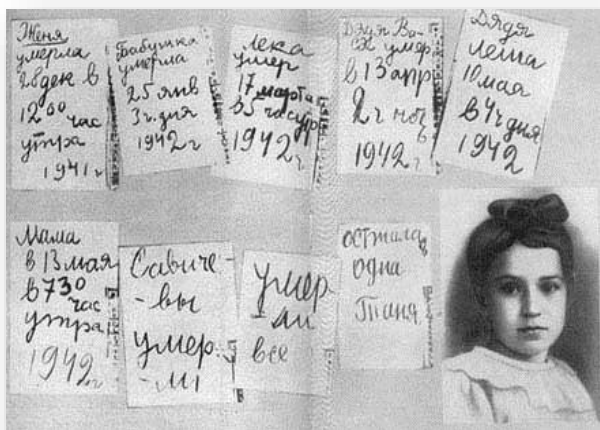 Женя
умерла
28 дек в
12 00 час
утра
1941 г
Бабушка
умерла
25 янв
3 ч. дня
1942 г
Лека
умер
17 марта
в 5 час утр
1942 г
Дядя Ва-
ся умер
в 13 апр
2 ч ноч
1942 г
Дядя
Леша
10 мая
в 4 ч дня
1942
Мама
в 13 мая
в 7 30
час
утра
1942 г
Савиче-
-вы
умер.
-ли
умер
-ли
все
Осталась
одна
Таня.